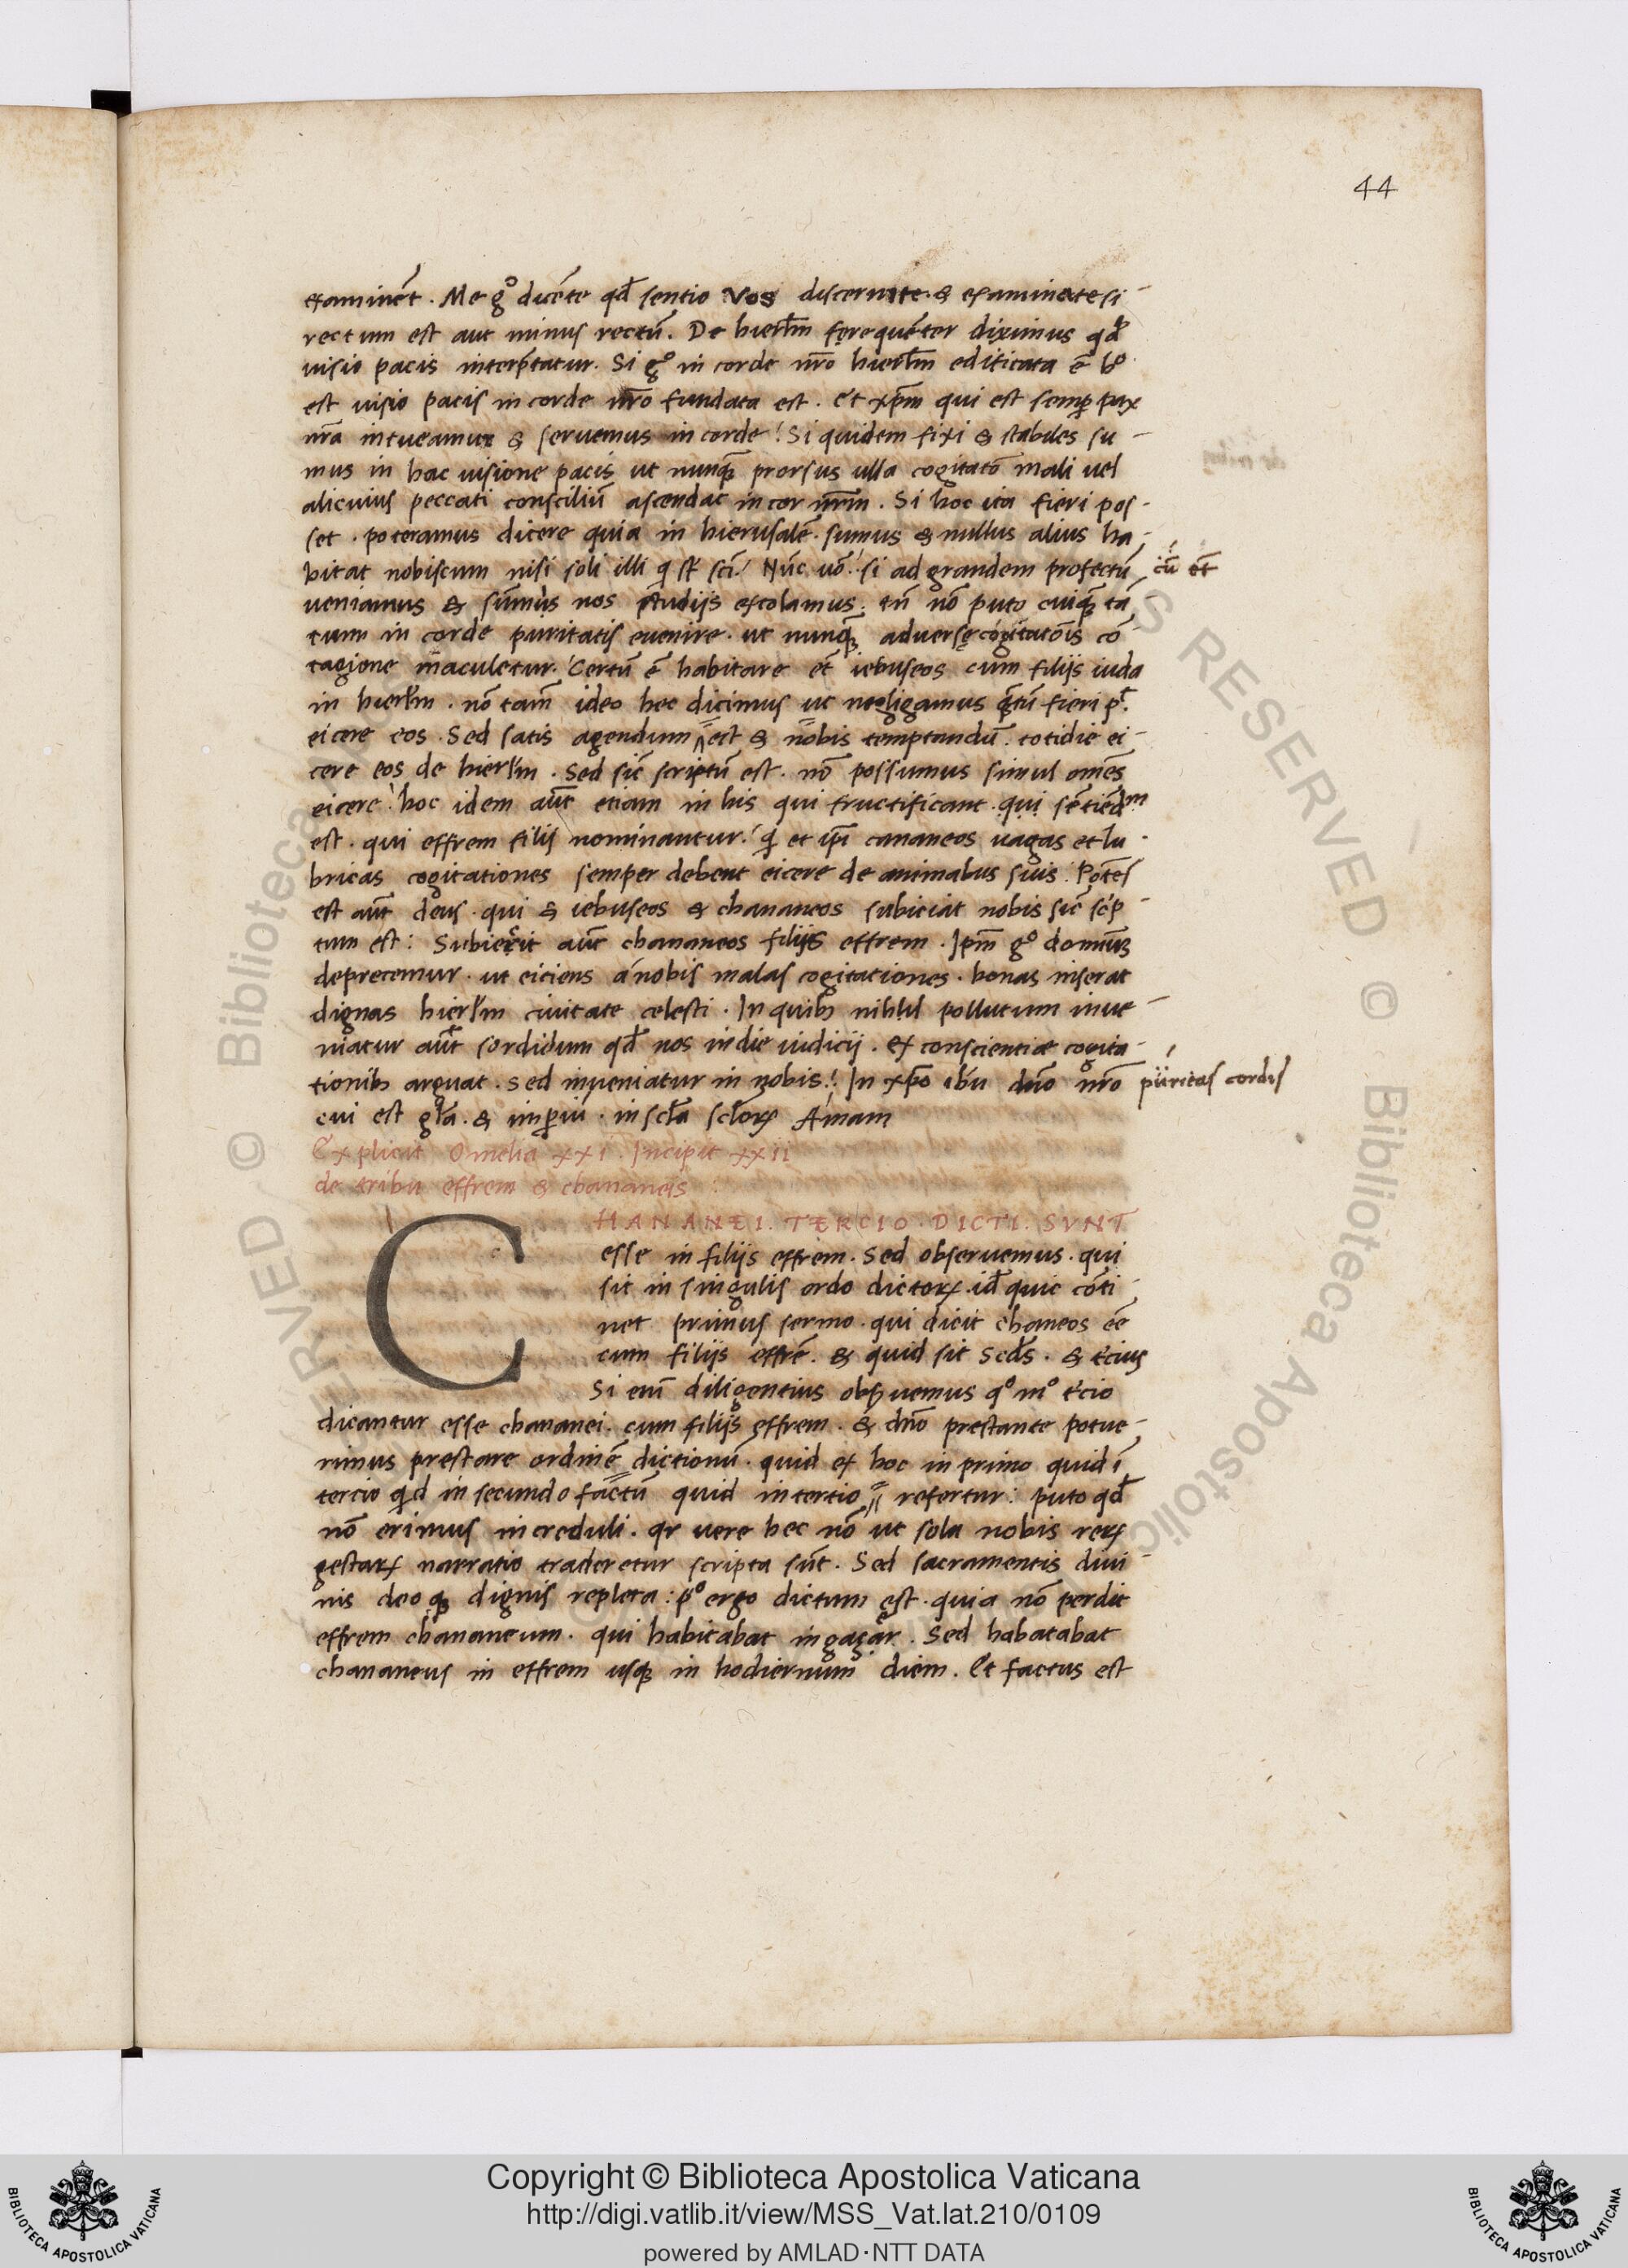 44
examinēt. Me gͦ dicēte qđ sentio Nos discernite. & examinate si
rectum est aut minus rectū. De hierl̄m ferequēter diximus qđ
uisio pacis interp̄tatur. Si gͦ in corde nr̄o hierl̄m edificata ē hͦ
est uisio pacis in corde nr̄o fundata est. Et xp̄m qui est semp̱ pax
nr̄a intueamur & seruemus in corde! Si quidem fixi & stabiles su-
mus in hac uisione pacis ut nunqꝫ prorsus ulla cogitatō mali uel
alicuius peccati consciliū ascendat in cor nr̄m. Si hoc ita fieri pos-
set. poteramus dicere quia in hierusalē. sumus & nullus alius ha-
bitat nobiscum nisi soli illi q st̄ sc̄i! Nūc uō! si ad grandem profectū
cū et̄
ueniamus & sūmis nos studijs excolamus. tn̄ nō puto cuiqꝫ tā
tum in corde puritatis euenire. ut nunqꝫ aduersę cogitatōis cō-
tagione maculetur. Certū ē habitare et̄ iebuseos cum filijs iuda
in hierl̄m. nō tam̄ ideo hec dicimus ut negligamus qntū fieri pt̄.
eicere eos. Sed satis agendum est & nobis temptandū. cotidie ei-
cere eos de hierl̄m. Sed sic̄ scriptū est. nō possumus simul om̄es
eicere! hoc idem aut̄ etiam in his qui fructificant. qui sētiēdm
est. qui effrem filij nominantur! q et ip̄i cananeos uagas et lu-
bricas cogitationes semper debent eicere de animabus suis. Potēs
est aut̄ deus. qui & iebuseos & chananeos subiciat nobis sic̄ sc̄p-
tum est: Subiecit aut̄ chananeos filijs effrem. Ipm̄ gͦ dominū
deprecemur. ut eiciens a nobis malas cogitationes. bonas inserat
dignas hierl̄m ciuitate celesti. In quibꝫ nihil pollutum inue-
niatur aut̄ sordidum qđ nos in die iudicij. ex conscientiæ cogita-
tionibꝫ arguat. sed inueniatur in nobis! In xp̄o ih̄u dn̄o nr̄o
puritas cordis
cui est gl̄a. & imp̱iū. in scl̄a scl̄oꝝ Amam
Explicit Omelia xxi. Incipit xxii
de tribu effrem & chananeis
C HANANEI. TERCIO. DICTI. SVNT
esse in filijs effrem. Sed obseruemus. qui
sit in singulis ordo dictoꝝ. id̄ quic cōti-
net primus sermo. qui dicit chaneos eē
cum filijs effrē. & quid sit scds̄. & t'cius
Si eni̅ diligentius obs̱uemus qͦmͦ t'cio
dicantur esse chananei. cum filijs effrem. & dn̄o prestante potue-
rimus prestare ordinē dictionū. quid ex hoc in primo quid ī
tercio qd in secundo factū quid in tertio refertur: puto qđ
nō erimus increduli. qr uere hec nō ut sola nobis reꝝ
gestaꝝ narratio traderetur scripta sūt. Sed sacramentis diui-
nis deoqꝫ dignis repleta: pͦ ergo dictum est. quia nō perdit
effrem chananeum. qui habitabat in gazar. Sed habatabat
chananeus in effrem usqꝫ in hodiernum diem. Et factus est
Copyright © Biblioteca Apostolica Vaticana
http://digi.vatlib.it/view/MSS_Vat.lat.210/0109
powered by AMLAD·NTT DATA
BIBLIOTECA APOSTOLICA VATICANA
BIBLIOTECA APOSTOLICA VATICANA